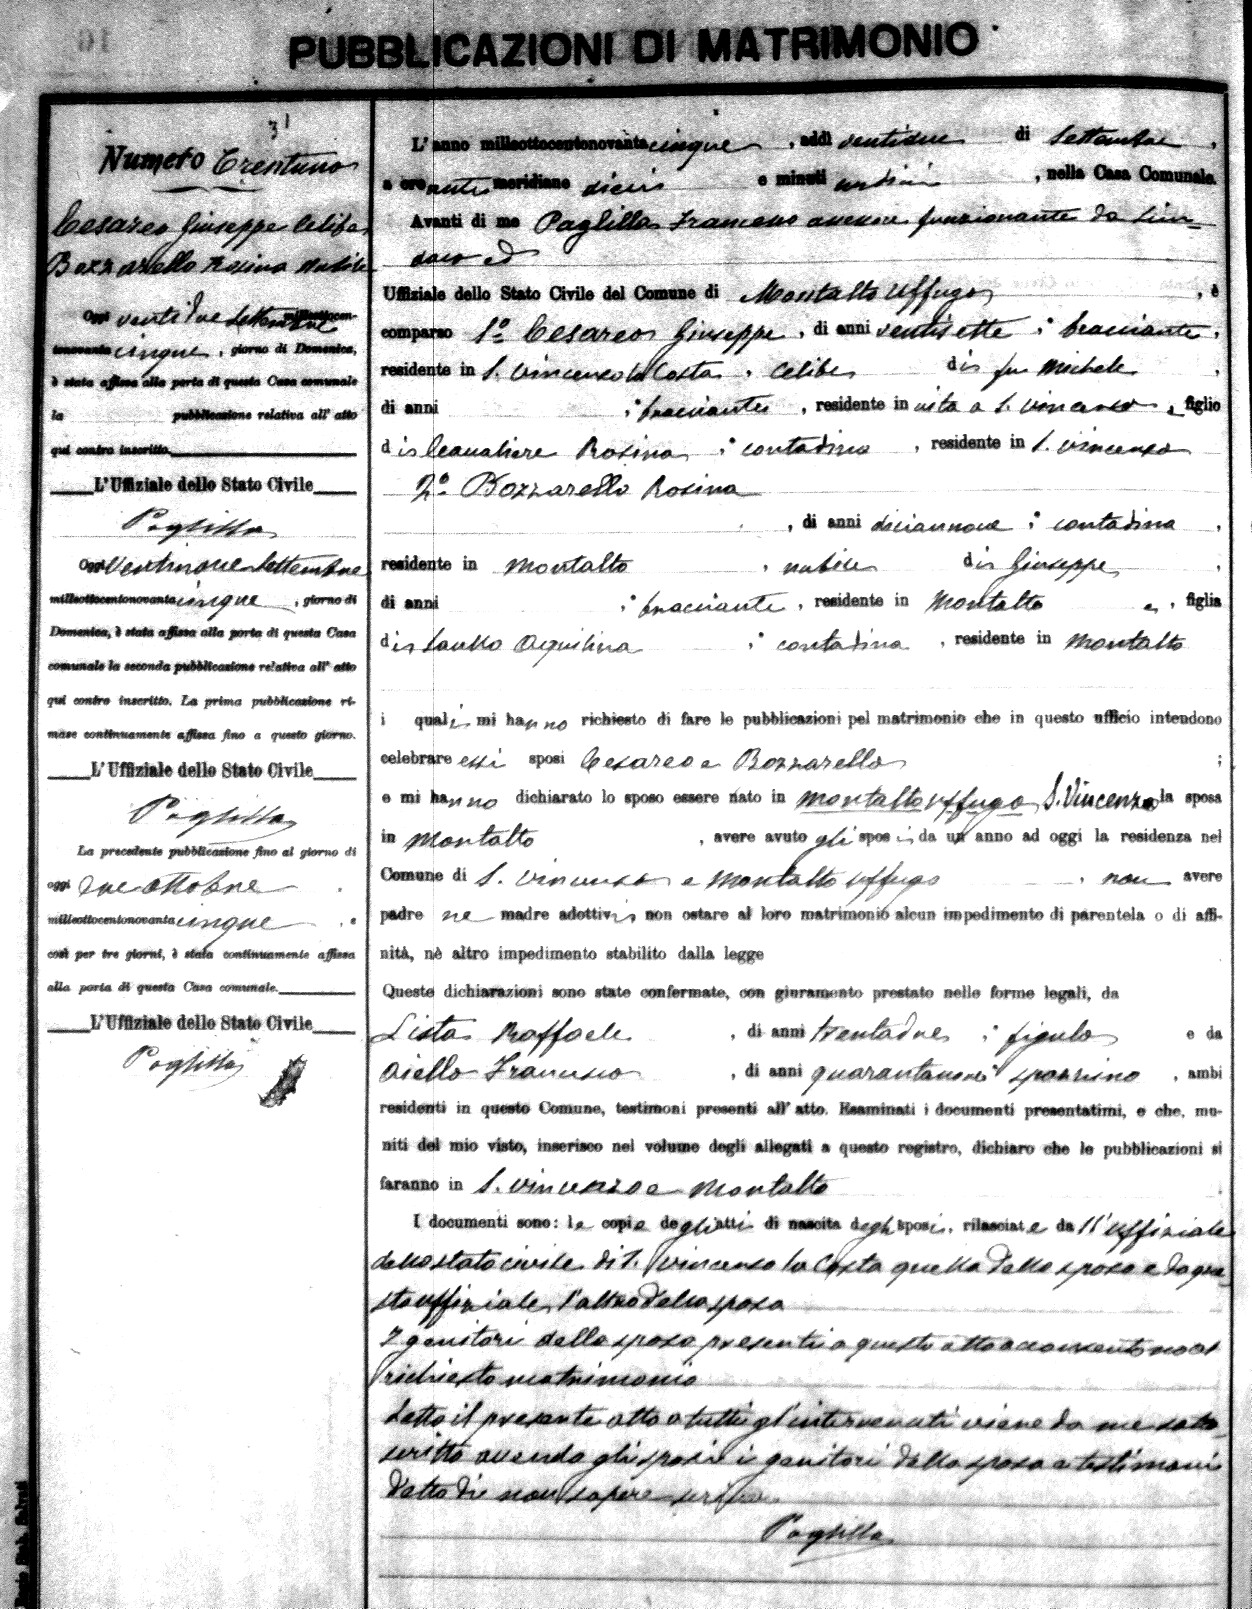 PUBBLICAZIONI DI MATRIMONIO
31
Numero Trentuno
Cesareo Giuseppe Celibe
Bozzarello Rosina nubile
Oggi ventidue Settembre milleottocen-
tonovanta cinque, giorno di Domenica,
è stata affissa alla porta di questa Casa comunale
la pubblicazione relativa all' atto
qui contro inscritto.
L'Uffiziale dello Stato Civile
Paglilla
Oggi Ventinove Settembre
milleottocentonovanta cinque, giorno di
Domenica, è stata affissa alla porta di questa Casa
comunale la seconda pubblicazione relativa all' atto
qui contro inscritto. La prima pubblicazione ri-
mase continuamente affissa fino a questo giorno.
L'Uffiziale dello Stato Civile
Paglilla
La precedente pubblicazione fino al giorno di
oggi due ottobre
milleottocentonovanta cinque, e
così per tre giorni, è stata continuamente affissa
alla porta di questa Casa comunale.
L'Uffiziale dello Stato Civile
Paglilla
L'anno milleottocentonovanta cinque, addì ventidue di Settembre,
a ore anti meridiane dieci e minuti undici, nella Casa Comunale.
Avanti di me Paglilla Francesco assessore funzionante da Sin-
daco ed
Uffiziale dello Stato Civile del Comune di Montalto Uffugo, è
comparso 1º Cesareo Giuseppe, di anni ventisette, bracciante,
residente in S. Vincenzo la Costa, celibe di fu Michele,
di anni , bracciante, residente in vita a S. Vincenzo, figlio
di Cavaliere Rosina, contadina, residente in S. Vincenzo
2º Bozzarello Rosina
, di anni diciannove, contadina,
residente in Montalto, nubile di Giuseppe,
di anni , bracciante, residente in Montalto e, figlia
di Aquilina, contadina, residente in Montalto
i quali mi hanno richiesto di fare le pubblicazioni pel matrimonio che in questo ufficio intendono
celebrare essi sposi Cesareo e Bozzarello;
e mi hanno dichiarato lo sposo essere nato in Montalto Uffugo S. Vincenzo la sposa
in Montalto, avere avuto gli sposi da un anno ad oggi la residenza nel
Comune di S. Vincenzo e Montalto Uffugo, non avere
padre ne madre adottivi non ostare al loro matrimonio alcun impedimento di parentela o di affi-
nità, nè altro impedimento stabilito dalla legge
Queste dichiarazioni sono state confermate, con giuramento prestato nelle forme legali, da
Lista Raffaele, di anni trentadue, figulo e da
Aiello Francesco, di anni quarantanove spazzino, ambi
residenti in questo Comune, testimoni presenti all' atto. Esaminati i documenti presentatimi, e che, mu-
niti del mio visto, inserisco nel volume degli allegati a questo registro, dichiaro che le pubblicazioni si
faranno in S. Vincenzo e Montalto
I documenti sono: le copie degli atti di nascita degli sposi, rilasciate da ll'uffiziale
dello stato civile di S. Vincenzo la Costa quella dello sposo e da que-
sto uffiziale l'altro della sposa
I genitori della sposa presenti a questo atto acconsentono al
richiesto matrimonio
Letto il presente atto a tutti gl'intervenuti viene da me sotto-
scritto avendo gli sposi i genitori della sposa e testimoni
detto di non sapere scrivere
Paglilla